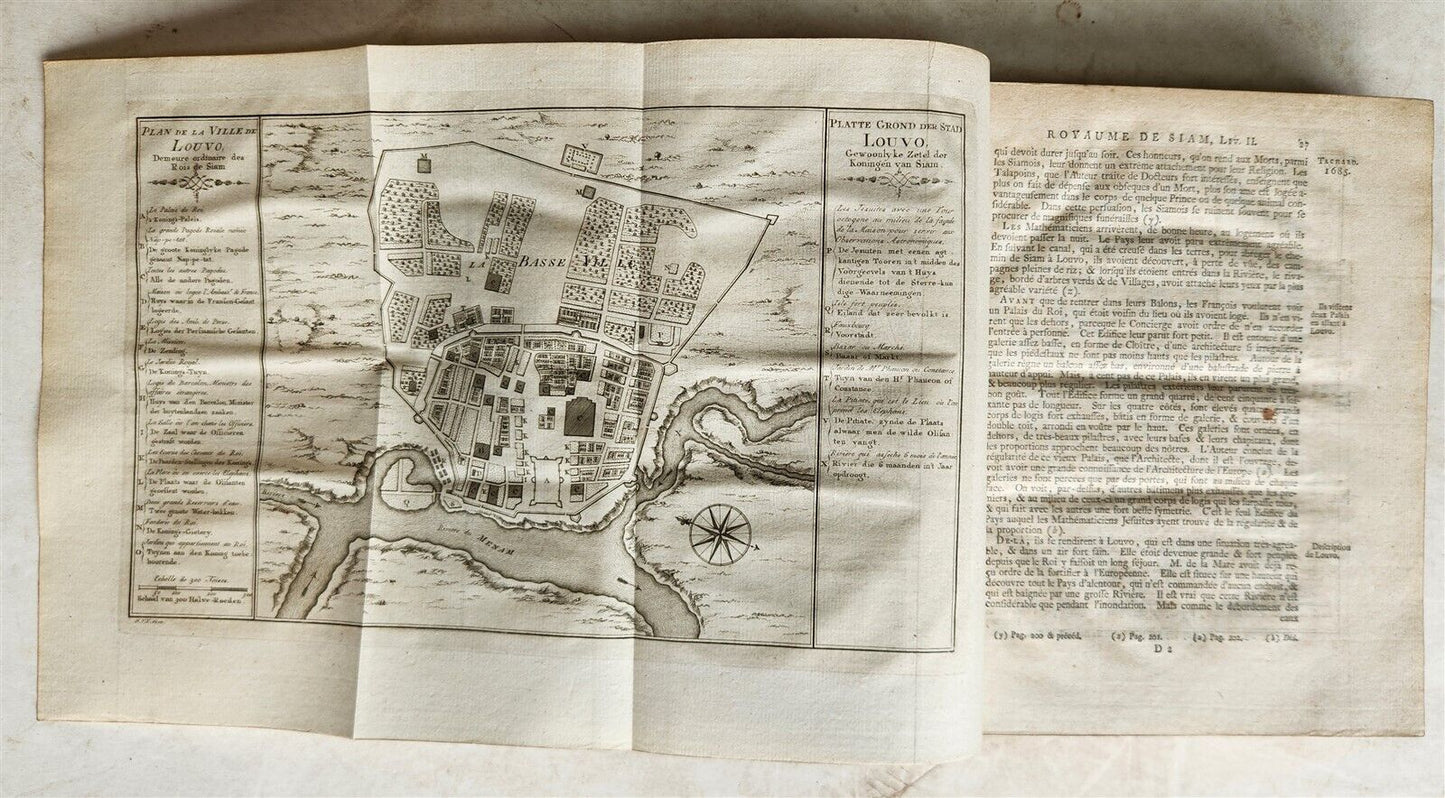 PLAN DE LA VILLE DE
LOUVO,
Demeure ordinaire des
Rois de Siam
A Le Palais du Roi.
's Konings-Paleis.
B La grande Pagode Royale
De groote Koninglyke Pagode
genaamt Nap-pe-tat.
C Toutes les autres Pagodes.
Alle de andere Pagoden.
D Maison où logea de France.
Huys waar in de Fransen Gesant
logeerde.
E Logis des de Perse.
Logies der Persiaansche Gesanten
F
G Le Jardin Royal.
De Konings-Tuyn.
H Logis du Barcalon, Ministre des
affaires étrangeres.
Huys van den Barcalon, Minister
der buytenlandsen zaaken.
I
De Zaal waar de Officieren
K Les Ecuries des Chevaux du Roi.
De Paarden-Stallingen des Konings
L
De Plaats waar de Olifanten
M Deux grands Reservoirs d'eau.
Twee groote Water-bakken.
N Fonderie du Roi.
De Konings-Gietery.
O Jardins qui appartiennent au Roi.
Tuynen aan den Koning toebe
hoorende.
Echelle de 300 Toises.
Schaal van 300 Halve-Roeden
LA BASSE VILLE
Riviere de MENAM
PLATTE GROND DER STAD
LOUVO,
Gewoonlyke Zetel der
Koningen van Siam.
Les Jesuites avec une Tour
octogone au milieu de la façade
de la Maison pour servir aux
Observations Astronomiques.
P De Jesuiten met eenen agt-
kantigen Tooren in't midden des
Voorgevels van 't Huys
dienende tot de Sterre-kun
dige Waarneemingen.
Q Isle fort peuplée.
Eiland dat zeer bevolkt is.
R Fauxbourg
Voorstadt
S Bazar ou Marché.
Bazar of Markt.
T Jardin de Mr. Phaucon ou Constance.
Tuyn van den Hr. Phaucon of
Constance.
V La Pilate, qui est le Lieu où l'on
prend les Elephans.
De Pilate, zynde de Plaats
alwaar men de wilde Olifan
ten vangt.
X Riviere qui asseche 6 mois de l'année
Rivier die 6 maanden in't Jaar
opdroogt.
ROYAUME DE SIAM, LIV. II. 27
TACHARD.
1685.
qui devoit durer jusqu'au soir. Ces honneurs, qu'on rend aux Morts, parmi
les Siamois, leur donnent un extreme attachement pour leur Religion. Les
Talapoins, que l'Auteur traite de Docteurs fort intéressés, enseignent que
plus on fait de dépense aux obséques d'un Mort, plus son ame est logée a-
vantageusement dans le corps de quelque Prince ou de quelque animal con-
sidérable. Dans cette persuasion, les Siamois se ruinent souvent pour se
procurer de magnifiques funérailles (y).
LES Mathématiciens arrivèrent, de bonne heure, au logement où ils
devoient passer la nuit. Le Pays leur avoit paru extrêmement agréable.
En suivant le canal, qui a été creusé dans les terres, pour abréger le che-
min de Siam à Louvo, ils avoient découvert, à perte de vûe, des cam-
pagnes pleines de riz; & lorsqu'ils étoient entrés dans la Rivière, le riva-
ge, bordé d'arbres verds & de Villages, avoit attaché leurs yeux par la plus
agréable variété (z).
AVANT que de rentrer dans leurs Balons, les François voulurent voir
un Palais du Roi, qui étoit voisin du lieu où ils avoient logé. Ils n'en vi-
rent que les dehors, parceque le Concierge avoit ordre de n'en accorder
l'entrée à personne. Cet Edifice leur parut fort petit. Il est entouré d'une
galerie assez basse, en forme de Cloître, d'une architecture si irrégulière,
que les piédestaux ne sont pas moins hauts que les pilastres. Autour de la
galerie règne un balcon assez bas, environné d'une balustrade de pierre à
hauteur d'appui. Mais, à cent pas de ce Palais, ils en virent un plus grand,
& beaucoup plus régulier. Les pilastres extérieurs leur parurent d'un
bon goût. Tout l'Edifice forme un grand quarré, de cent cinquante à
xante pas de longueur. Sur les quatre côtés, sont élevés quatre grands
corps de logis fort exhaussés, bâtis en forme de galerie, & couverts d'un
double toît, arrondi en voûte par le haut. Ces galeries sont ornées, en
dehors, de très-beaux pilastres, avec leurs bases & leurs chapiteaux, dont
les proportions approchent beaucoup des nôtres. L'Auteur conclut de la
régularité de ce vieux Palais, que l'Architecte, dont il est l'ouvrage, de-
voit avoir une grande connoissance de l'Architecture de l'Europe (a). Les
galeries ne sont percées que par des portes, qui sont au milieu de chaque
face. On voit, par-dessus, d'autres batimens plus exhaussés que les pre-
miers, & au milieu de ceux-ci un grand corps de logis qui les
& qui fait avec les autres une fort belle symetrie. C'est le seul Edifice du
Pays auquel les Mathématiciens Jésuites ayent trouvé de la régularité & de
la proportion (b).
DE-LÀ, ils se rendirent à Louvo, qui est dans une situation très-agréa-
ble, & dans un air fort sain. Elle étoit devenue grande & fort peuplée
depuis que le Roi y faisoit un long séjour. M. de la Mare avoit déja re-
çu ordre de la fortifier à l'Européenne. Elle est située sur une hauteur qui
découvre tout le Pays d'alentour, qui n'est commandée d'aucun endroit, &
qui est baignée par une grosse Rivière. Il est vrai que cette Rivière n'est
considérable que pendant l'inondation. Mais comme le débordement des
eaux
Ils visitent
deux Palais
en allant à
Louvo.
Description
de Louvo.
(y) Pag. 200 & précéd. (z) Pag. 201. (a) Pag. 202. (b) Ibid.
D 2